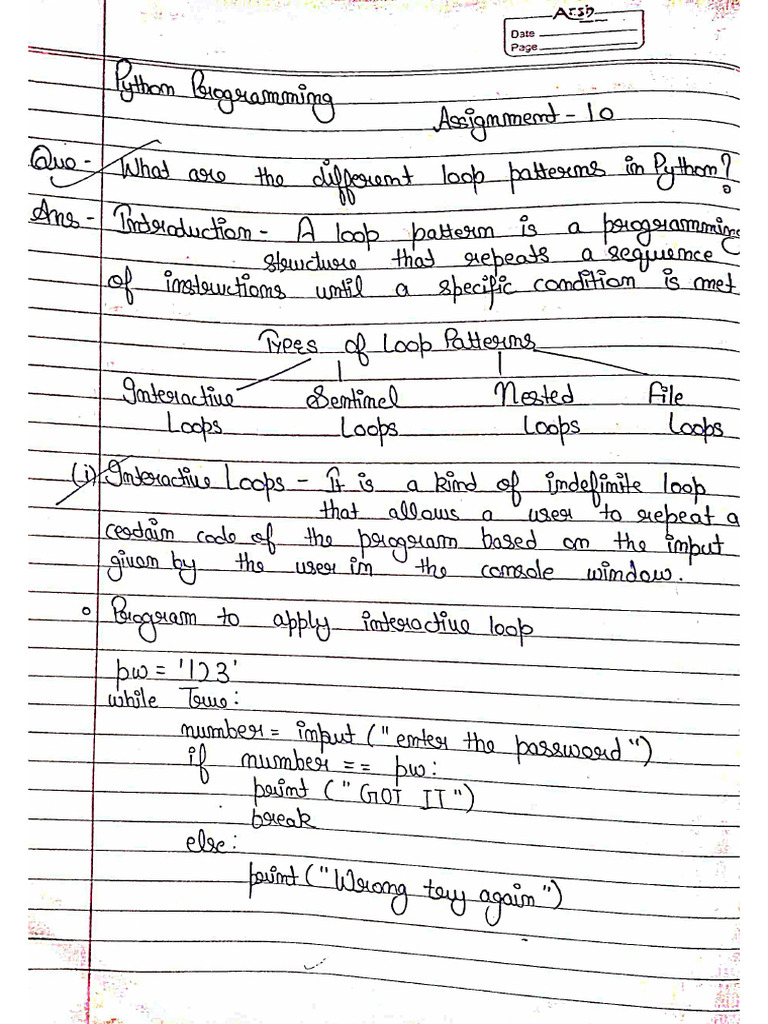 Arsh
Date
Page
Python Programming
Assignment - 10
Que - What are the different loop patterns in Python?
Ans - Introduction - A loop pattern is a programming
structure that repeats a sequence
of instructions until a specific condition is met
Types of Loop Patterns
Interactive Sentinel Nested File
Loops Loops Loops Loops
(i) Interactive Loops - It is a kind of indefinite loop
that allows a user to repeat a
certain code of the program based on the input
given by the user in the console window.
Program to apply interactive loop
pw = '123'
while True:
number = input ("enter the password")
if number == pw:
print ("GOT IT")
break
else:
print ("Wrong try again")